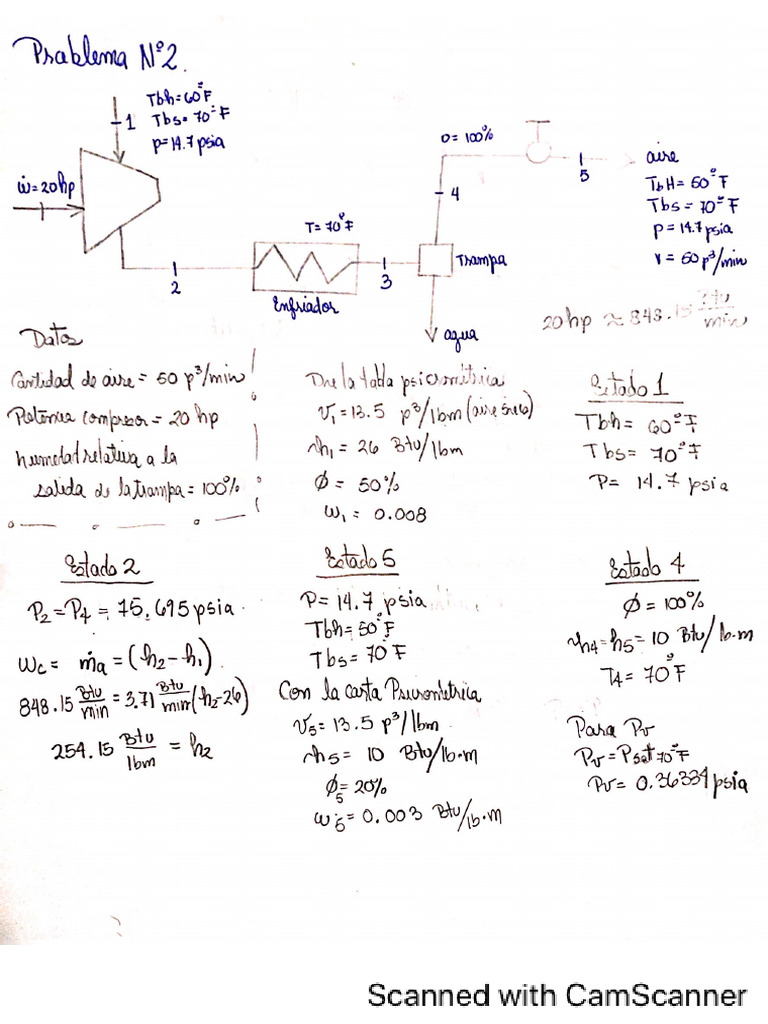 Problema Nº2.
Tbh=60°F
1 Tbs=70°F
p=14.7 psia
ẇ=20hp
2
T=70°F
Enfriador
3
Trampa
agua
4
Ø=100%
5
aire
TbH=50°F
Tbs=70°F
p=14.7psia
V=50p³/min
20hp ≈ 848.15 Btu/min
Datos
Cantidad de aire = 50 p³/min
Potencia compresor = 20 hp
humedad relativa a la
salida de la trampa = 100%
De la tabla psicrométrica
V₁=13.5 p³/lbm (aire seco)
h₁= 26 Btu/lbm
Ø = 50%
W₁= 0.008
Estado 1
Tbh= 60°F
Tbs= 70°F
P= 14.7 psia
Estado 2
P₂=P₄= 75.695psia.
Wc= ṁa=(h₂-h₁)
848.15 Btu/min = 3.71 Btu/min (h₂-26)
254.15 Btu/lbm = h₂
Estado 5
P= 14.7 psia
Tbh= 50°F
Tbs= 70°F
Con la carta Psicrométrica
V₅= 13.5 p³/lbm
h₅= 10 Btu/lb.m
Ø₅= 20%
W₅= 0.003 Btu/lb.m
Estado 4
Ø=100%
h₄=h₅=10 Btu/lb.m
T₄= 70°F
Para Pv
Pv=Psat 70°F
Pv= 0.36334psia
Scanned with CamScanner